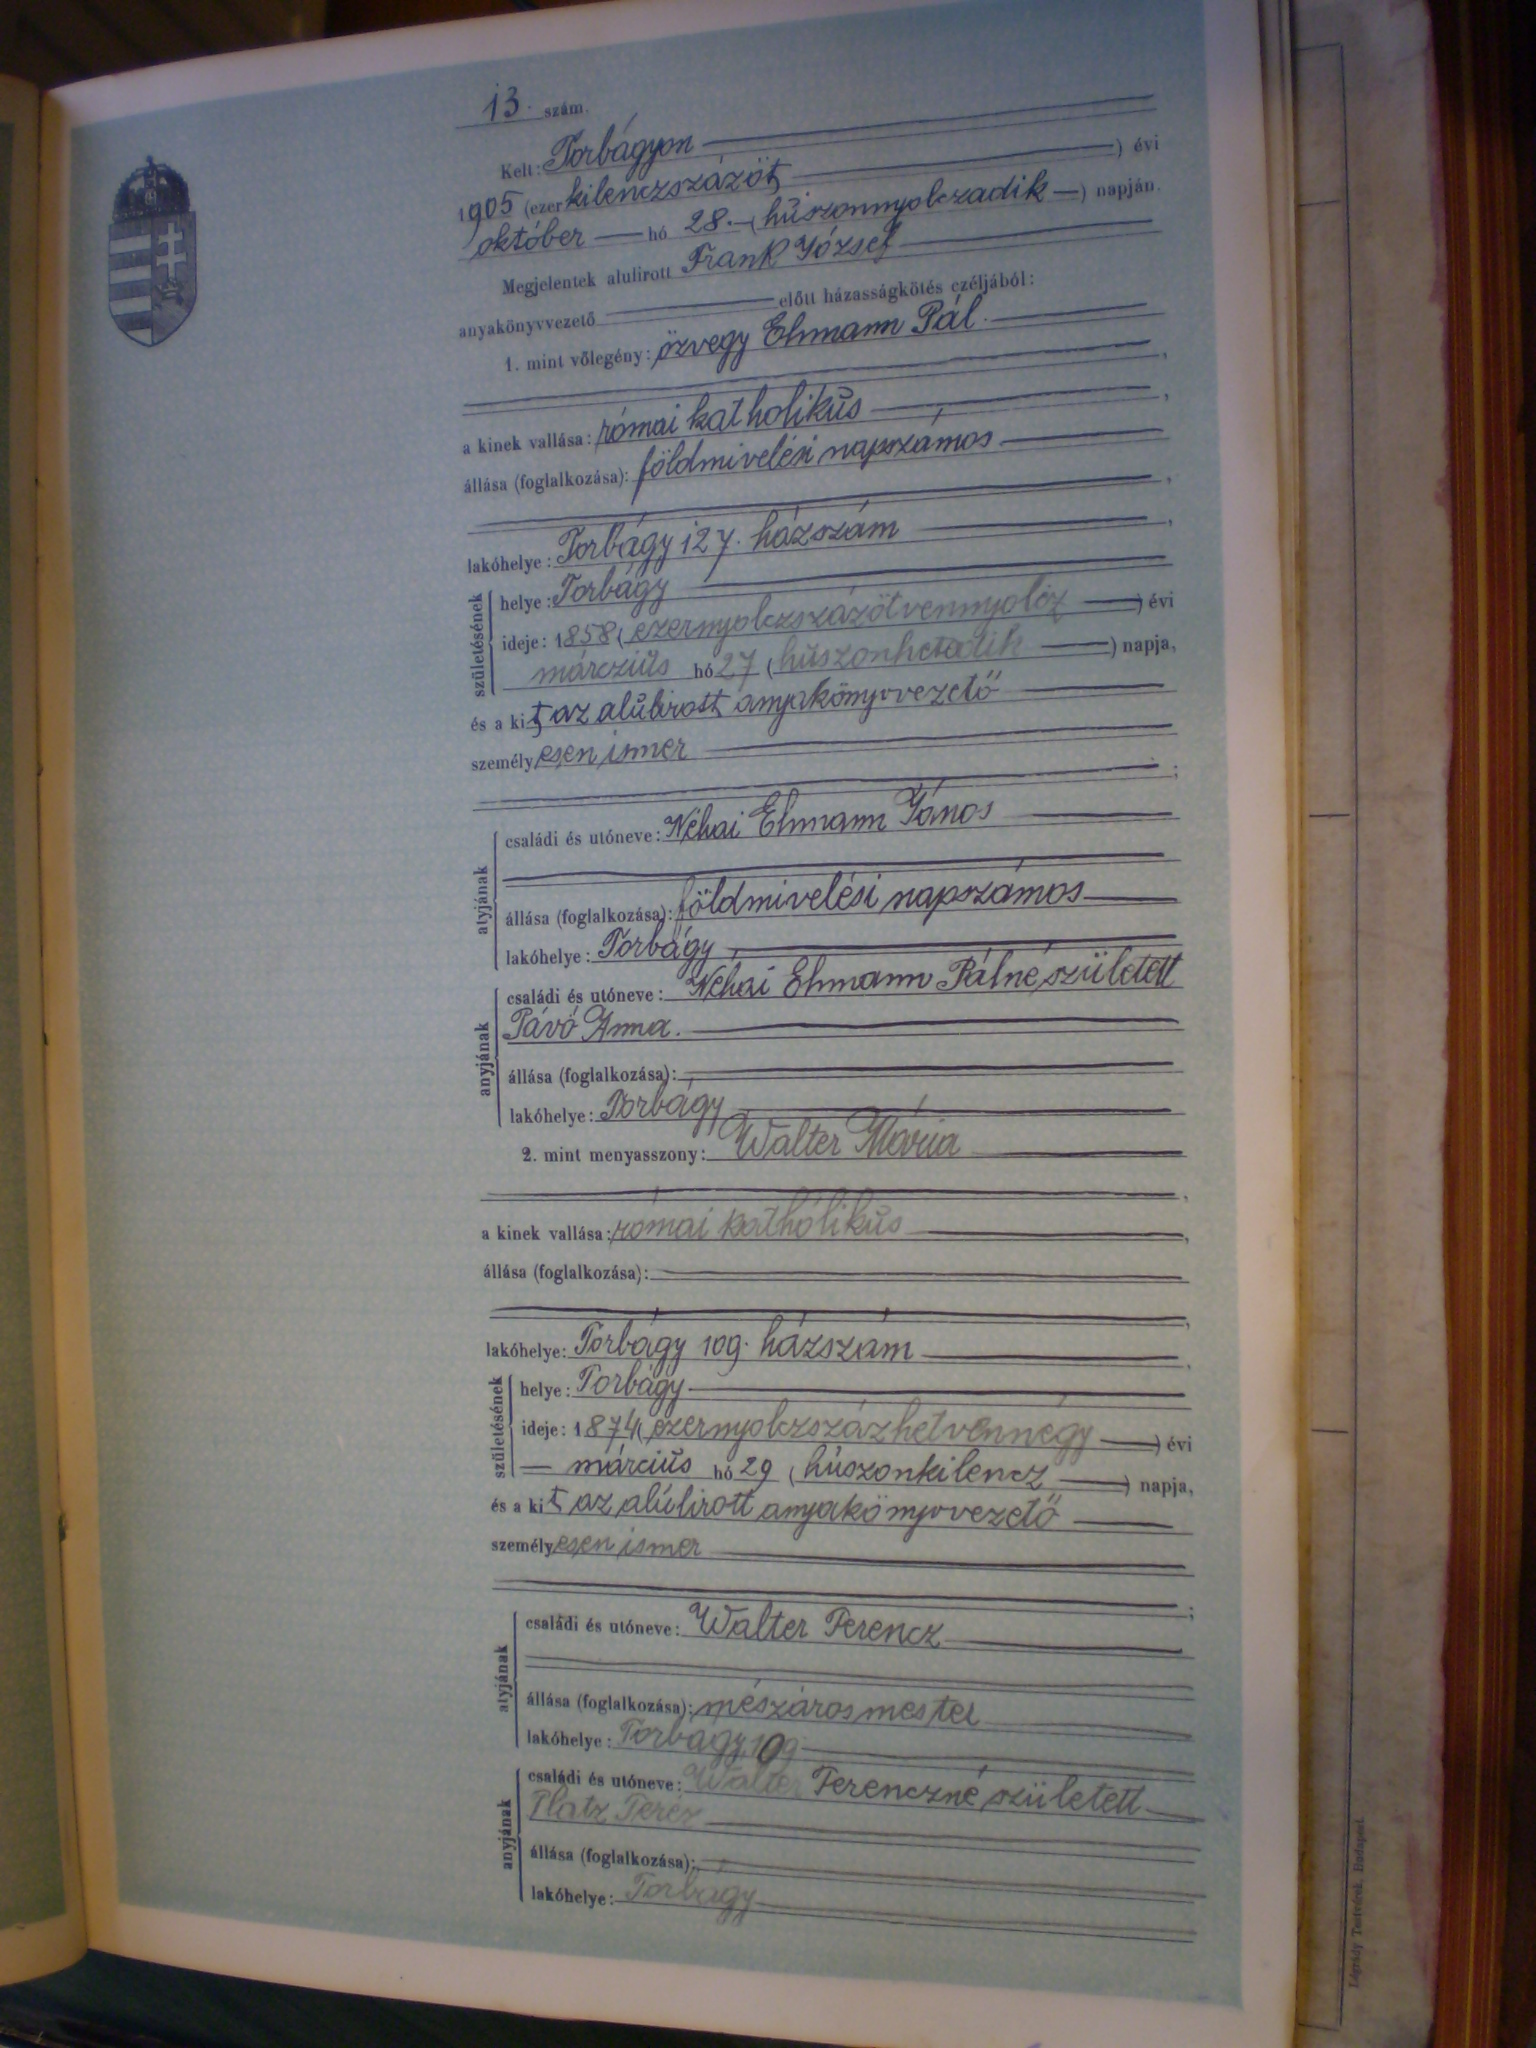 13. szám.
Kelt: Torbágyon
1905 (ezer kilenczszázöt ) évi
október hó 28. (húszonnyolczadik ) napján.
Megjelentek alulirott Frank József
anyakönyvvezető előtt házasságkötés czéljából:
1. mint vőlegény: özvegy Ehmann Pál.
a kinek vallása: római katholikús ,
állása (foglalkozása): földmivelési napszámos
lakóhelye: Torbágy 127. házszám ,
születésének
helye: Torbágy
ideje: 1858 (ezernyolczszázötvennyolcz ) évi
márcziús hó 27 (húszonhetedik ) napja,
és a kit az alúlirott anyakönyvvezető
személyesen ismer
;
atyjának
családi és utóneve: Néhai Ehmann János
állása (foglalkozása): földmivelési napszámos
lakóhelye: Torbágy
anyjának
családi és utóneve: Néhai Ehmann Pálné született
Pávó Anna.
állása (foglalkozása):
lakóhelye: Torbágy
2. mint menyasszony: Walter Mária
a kinek vallása: római kathólikús ,
állása (foglalkozása):
lakóhelye: Torbágy 109. házszám
születésének
helye: Torbágy
ideje: 1874 (ezernyolczszázhetvennégy ) évi
márciús hó 29 (húszonkilencz ) napja,
és a kit az alúlirott anyakönyvvezető
személyesen ismer
;
atyjának
családi és utóneve: Walter Ferencz
állása (foglalkozása): mészáros mester
lakóhelye: Torbágy 109
anyjának
családi és utóneve: Walter Ferenczné született
Platz Teréz
állása (foglalkozása):
lakóhelye: Torbágy
Légrády Testvérek, Budapest.